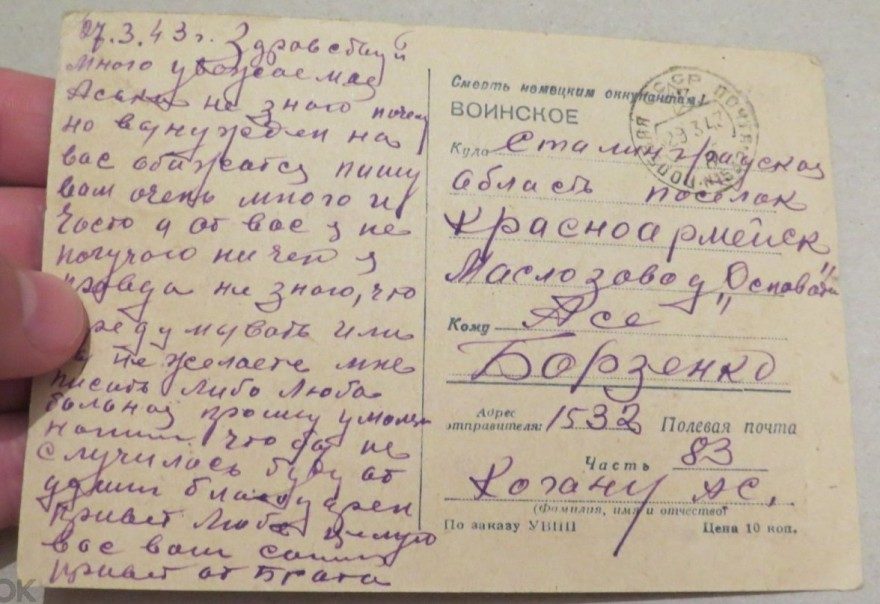 07.3.43г. Здравствуй
много уважаемая
Аська не знаю почему
но вынужден на
вас обижатся пишу
вам очень много и
часто а от вас я не
получаю ничего я
правда не знаю, что
придумывать или
вы не желаете мне
писать либо Люба
больная прошу умоляю
напиши что бы не
случилось буду от
души благодарен
Привет Любе целую
вас ваш
привет от Брата
Смерть немецким оккупантам!
ВОИНСКОЕ
Куда Сталинградская
область поселок
Красноармейск
Маслозавод
Кому Асе
Борзенко
Адрес
отправителя: 1532 Полевая почта
Часть 83
Когану АС.
(Фамилия, имя и отчество)
По заказу УВПП Цена 10 коп.
СССР ПОЧТА
29 3 43
ПОЛЕВАЯ
OK